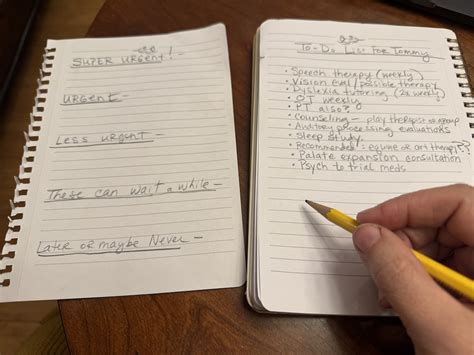 SUPER URGENT! -
URGENT -
Less urgent -
These can wait a while -
Later or maybe Never -
To-Do List For Tommy
• Speech therapy (weekly)
• Vision Eval/possible therapy
• Dyslexia tutoring (2x weekly)
• OT weekly
• PT also?
• Counseling - play therapist or group
• Auditory processing evaluations
• Sleep study
• Recommended: equine or art therapy??
• Palate expansion consultation
• Psych to trial meds